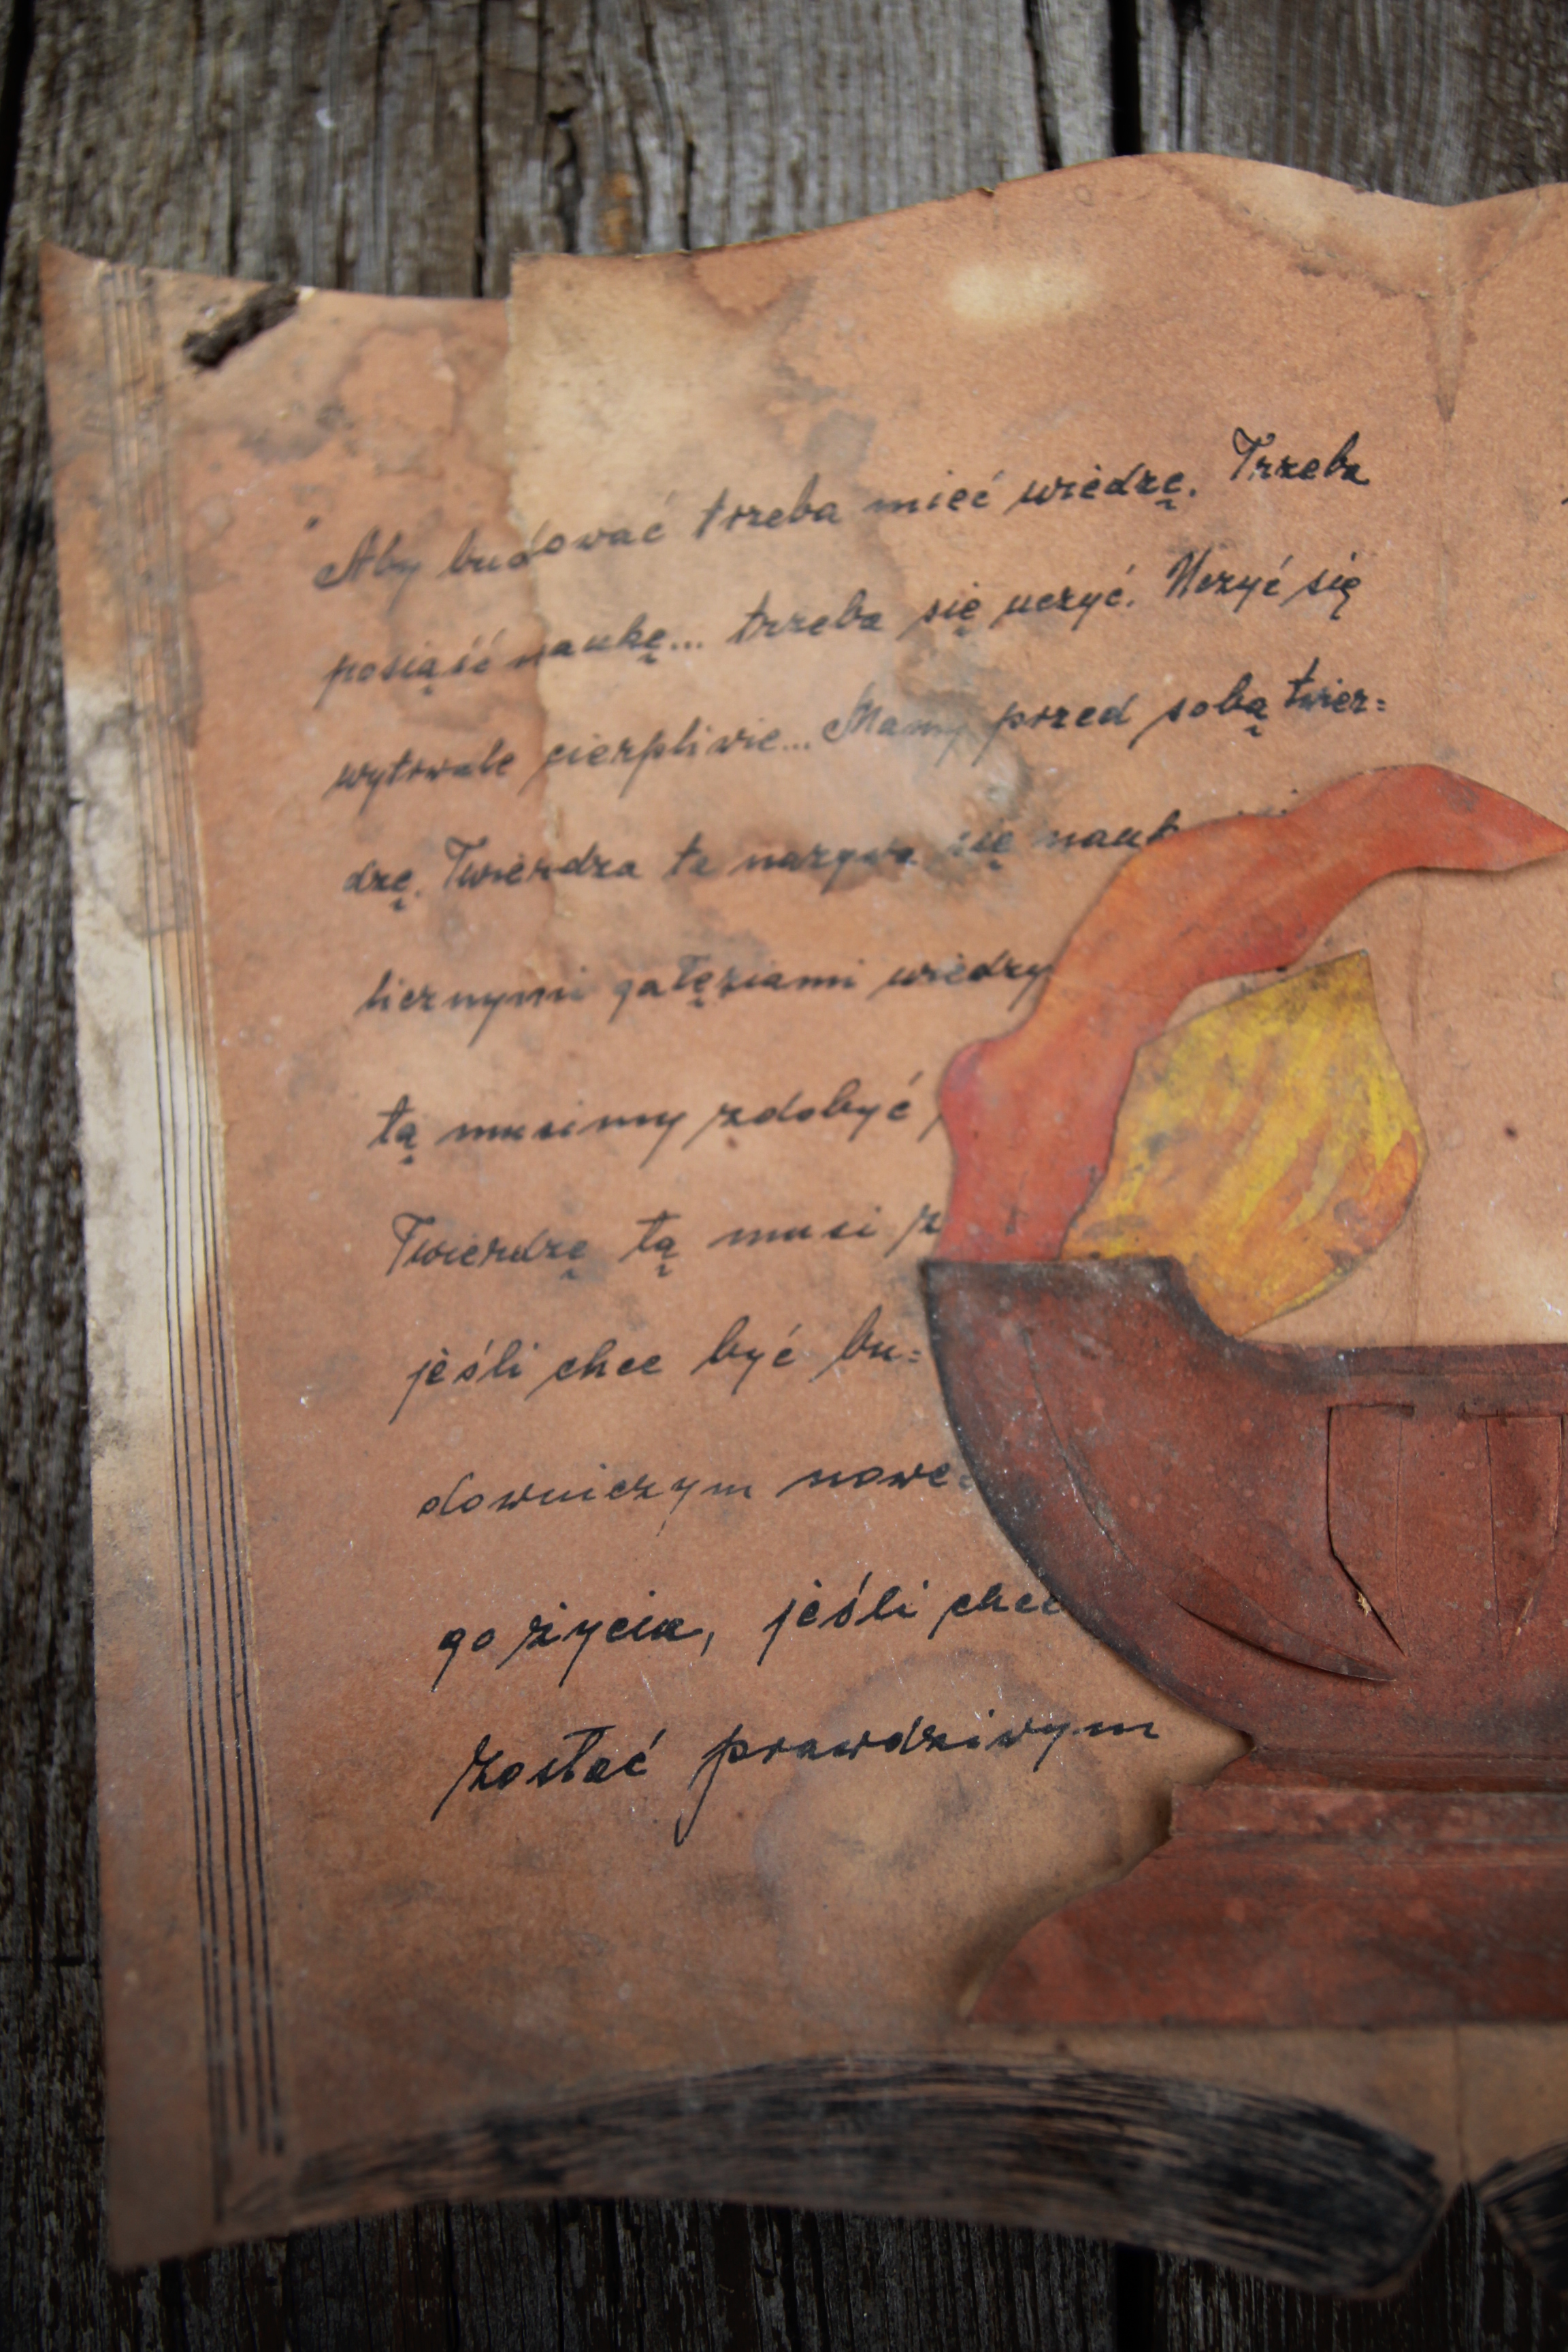 "Aby budować trzeba mieć wiedzę. Trzeba
posiąść naukę... trzeba się uczyć. Uczyć się
wytrwale cierpliwie... Mamy przed sobą twier=
dzę. Twierdza ta nazywa się nauk
licznymi gałęziami wiedzy
tą musimy zdobyć
Twierdzę tą musi
jeśli chce być bu=
downiczym nowe=
go życia, jeśli chce
zostać prawdziwym